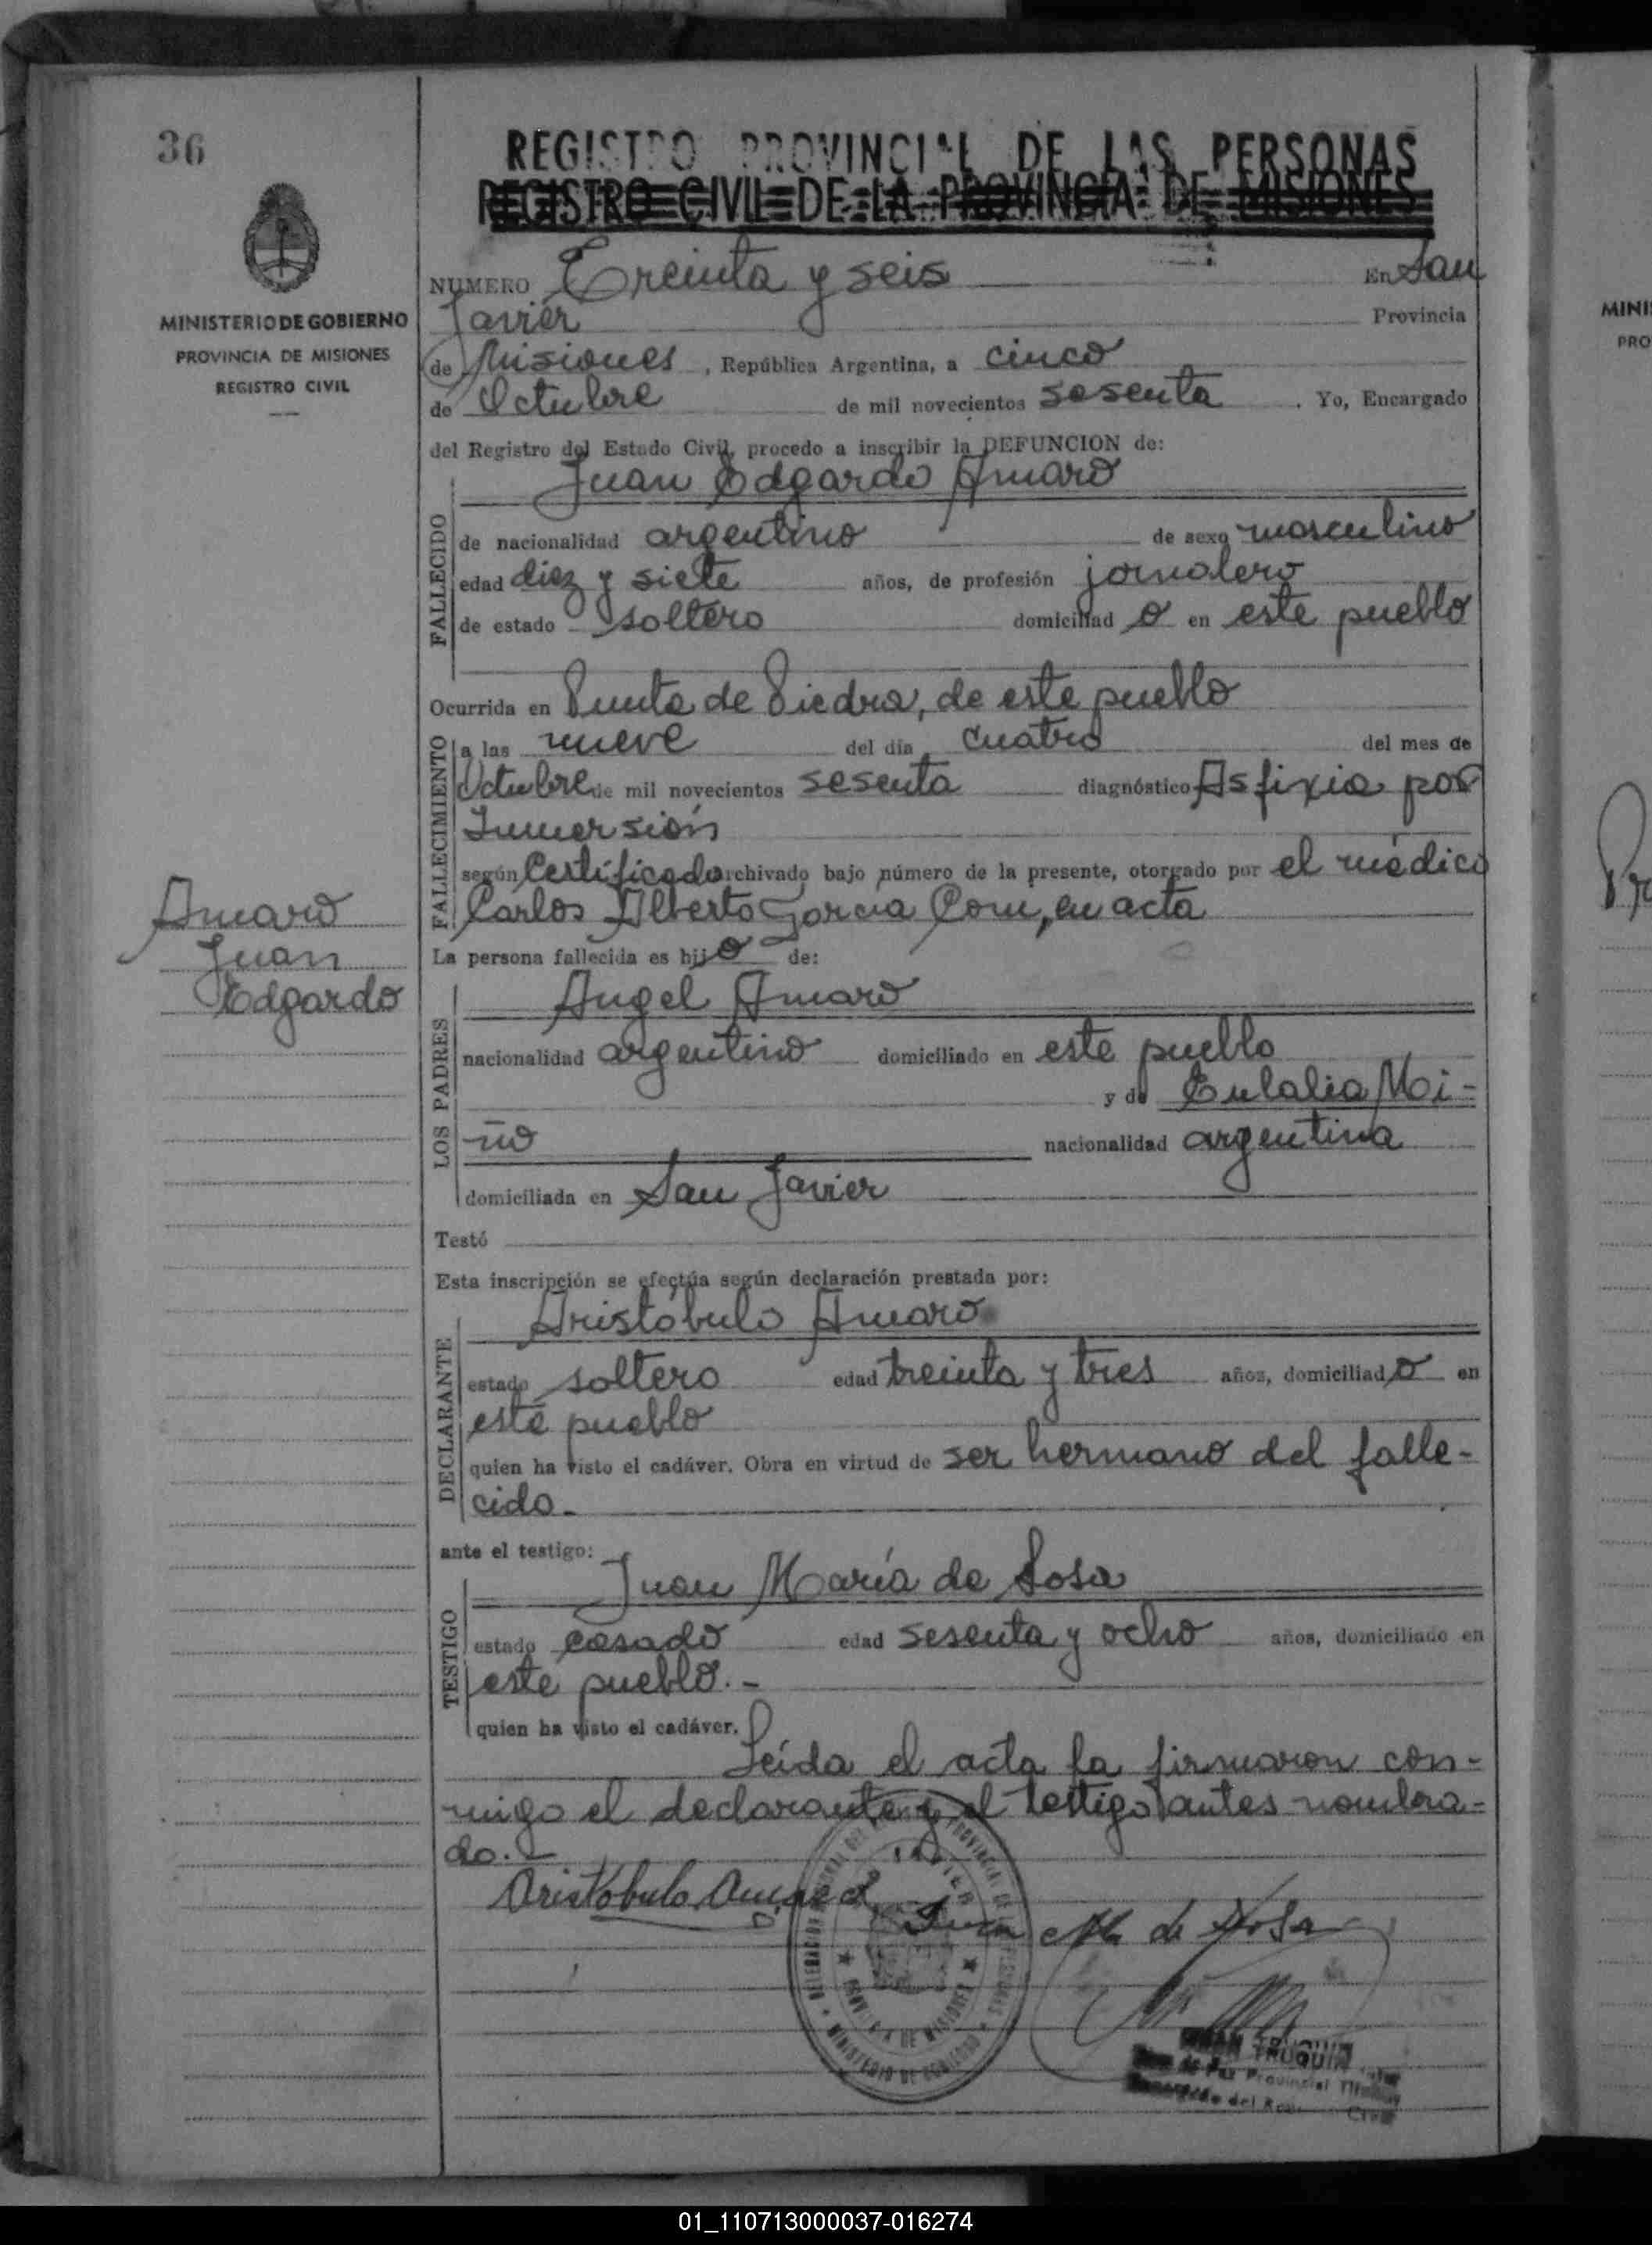 36
REGISTRO PROVINCIAL DE LAS PERSONAS
REGISTRO CIVIL DE LA PROVINCIA DE MISIONES
MINISTERIO DE GOBIERNO
PROVINCIA DE MISIONES
REGISTRO CIVIL
NUMERO Treinta y seis En San
Javier Provincia
de Misiones, República Argentina, a cinco
de Octubre de mil novecientos sesenta. Yo, Encargado
del Registro del Estado Civil, procedo a inscribir la DEFUNCION de:
Juan Edgardo Amaro
FALLECIDO
de nacionalidad argentino de sexo masculino
edad diez y siete años, de profesión jornalero
de estado soltero domiciliad o en este pueblo
Ocurrida en Punta de Piedra, de este pueblo
FALLECIMIENTO
a las nueve del día cuatro del mes de
Octubre de mil novecientos sesenta diagnóstico Asfixia por
Inmersión
según Certificado archivado bajo número de la presente, otorgado por el médico
Carlos Alberto Garcia Com, en acta
Amaro
Juan
Edgardo
La persona fallecida es hijo de:
Angel Amaro
LOS PADRES
nacionalidad argentino domiciliado en este pueblo
y de Eulalia Moi-
ño nacionalidad argentina
domiciliada en San Javier
Testó
Esta inscripción se efectúa según declaración prestada por:
Aristóbulo Amaro
DECLARANTE
estado soltero edad treinta y tres años, domiciliado en
este pueblo
quien ha visto el cadáver. Obra en virtud de ser hermano del falle-
cido.-
ante el testigo:
Juan María de Sosa
TESTIGO
estado casado edad sesenta y ocho años, domiciliado en
este pueblo.-
quien ha visto el cadáver.
Leída el acta la firmaron con-
migo el declarante y el testigo antes nombra-
do.-
Aristobulo Amaro
Juan Ma de Sosa
JUAN TRUQUIN
Juez de Paz Provincial Titular
Encargado del Reg. Civil
MINI
PRO
01_110713000037-016274